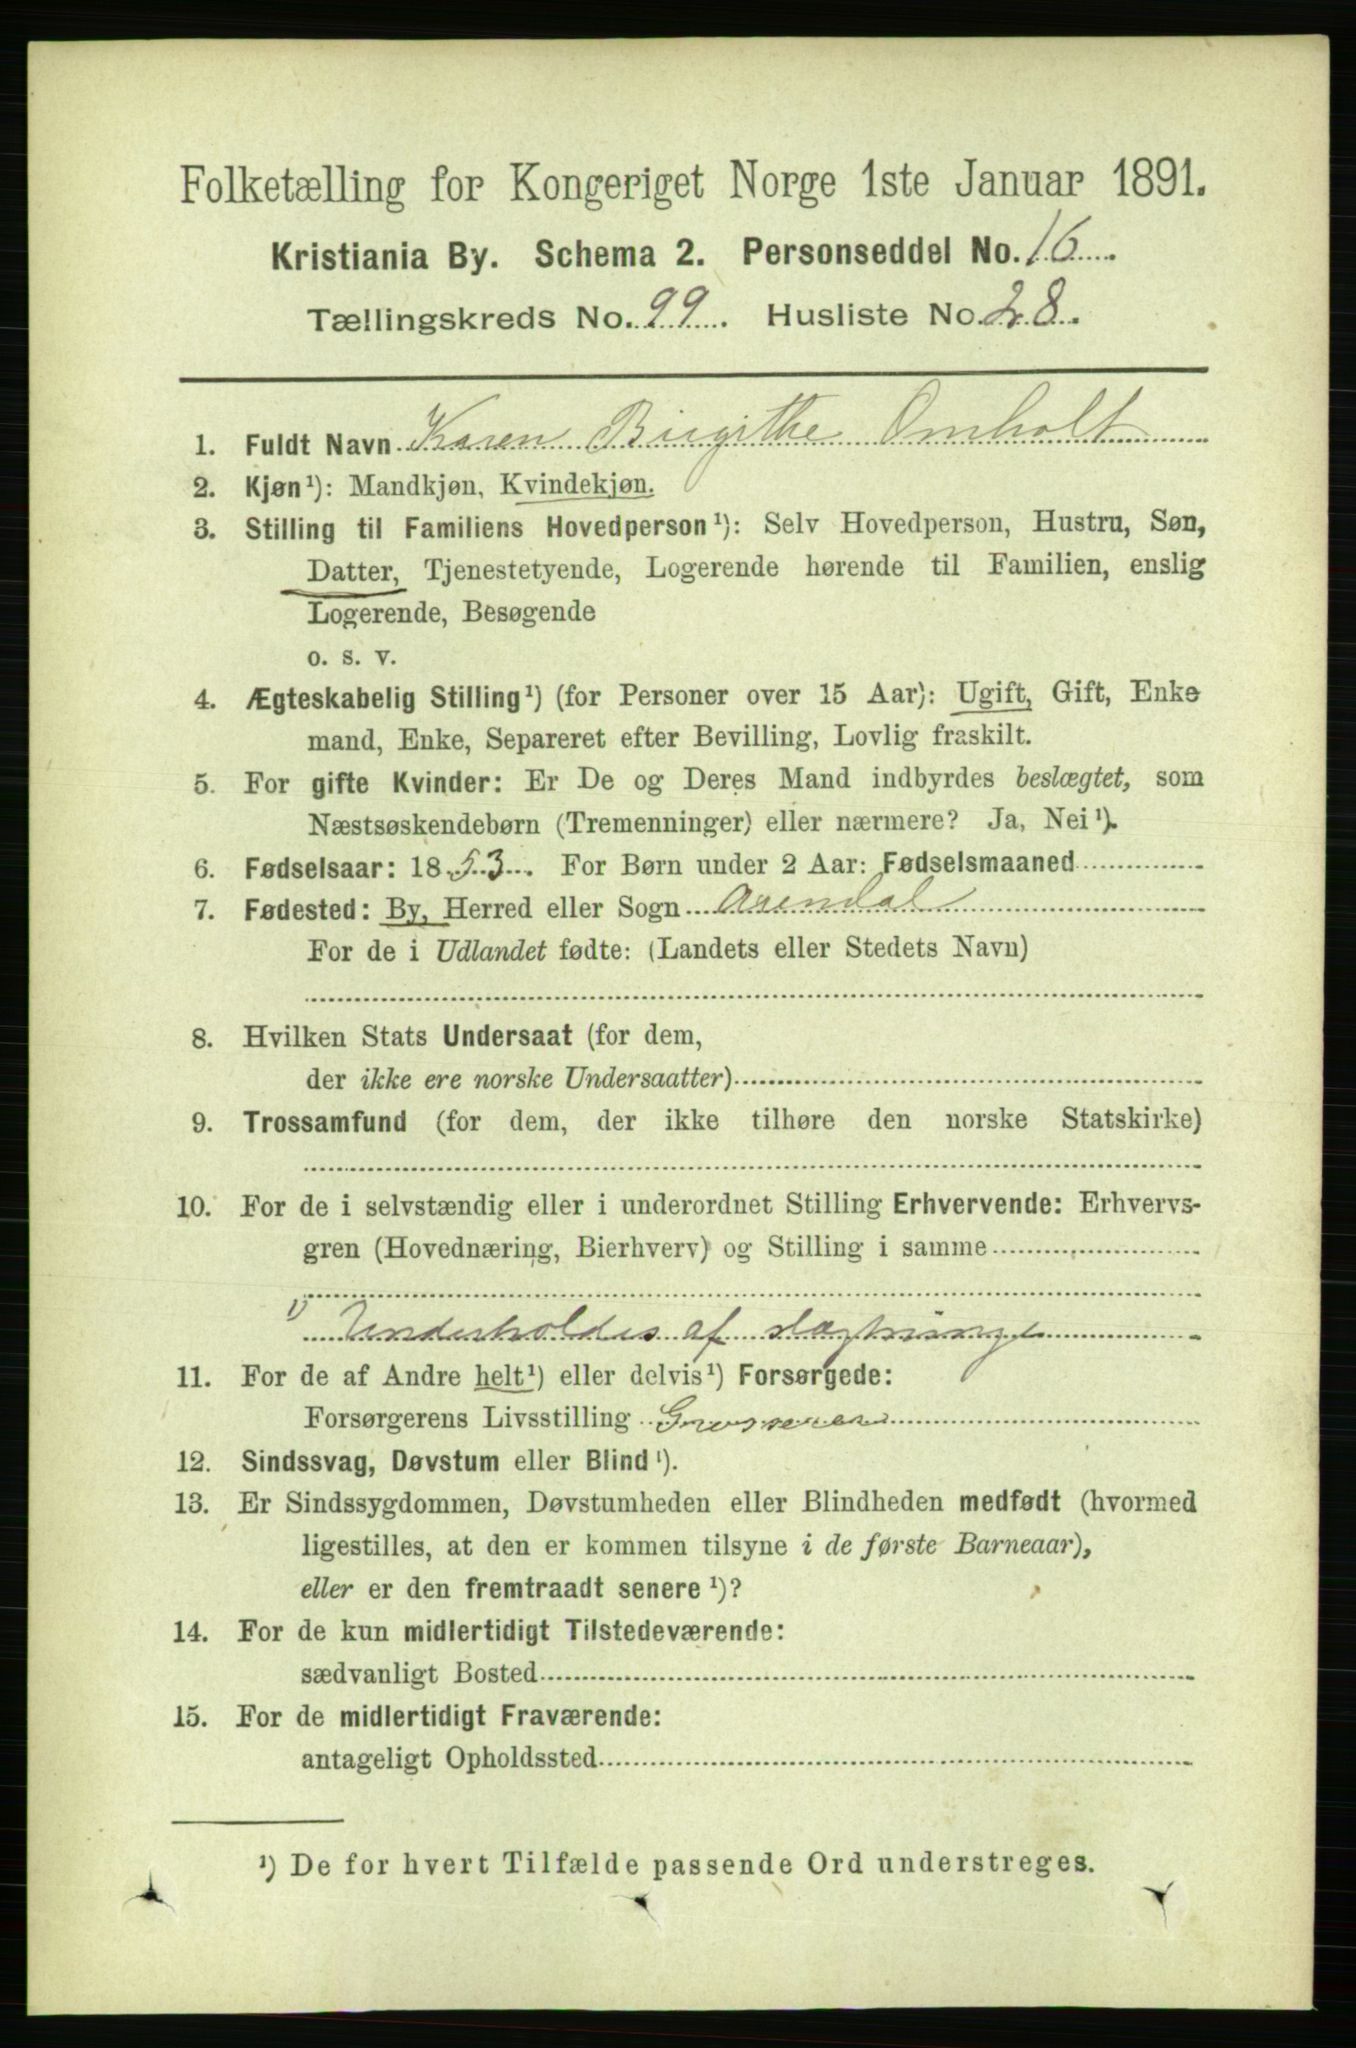 Folketælling for Kongeriget Norge 1ste Januar 1891.
Kristiania By. Schema 2. Personseddel No. 16
Tællingskreds No. 99. Husliste No. 28.
1. Fuldt Navn Karen Birgithe Omholt
2. Kjøn¹): Mandkjøn, Kvindekjøn.
3. Stilling til Familiens Hovedperson¹): Selv Hovedperson, Hustru, Søn,
Datter, Tjenestetyende, Logerende hørende til Familien, enslig
Logerende, Besøgende
o. s. v.
4. Ægteskabelig Stilling¹) (for Personer over 15 Aar): Ugift, Gift, Enke
mand, Enke, Separeret efter Bevilling, Lovlig fraskilt.
5. For gifte Kvinder: Er De og Deres Mand indbyrdes beslægtet, som
Næstsøskendebørn (Tremenninger) eller nærmere? Ja, Nei¹).
6. Fødselsaar: 1853. For Børn under 2 Aar: Fødselsmaaned
7. Fødested: By, Herred eller Sogn Arendal
For de i Udlandet fødte: (Landets eller Stedets Navn)
8. Hvilken Stats Undersaat (for dem,
der ikke ere norske Undersaatter)
9. Trossamfund (for dem, der ikke tilhøre den norske Statskirke)
10. For de i selvstændig eller i underordnet Stilling Erhvervende: Erhvervs-
gren (Hovednæring, Bierhverv) og Stilling i samme
¹) Underholdes af slægtninge
11. For de af Andre helt¹) eller delvis¹) Forsørgede:
Forsørgerens Livsstilling Grosserer
12. Sindssvag, Døvstum eller Blind¹).
13. Er Sindssygdommen, Døvstumheden eller Blindheden medfødt (hvormed
ligestilles, at den er kommen tilsyne i de første Barneaar),
eller er den fremtraadt senere¹)?
14. For de kun midlertidigt Tilstedeværende:
sædvanligt Bosted
15. For de midlertidigt Fraværende:
antageligt Opholdssted
¹) De for hvert Tilfælde passende Ord understreges.